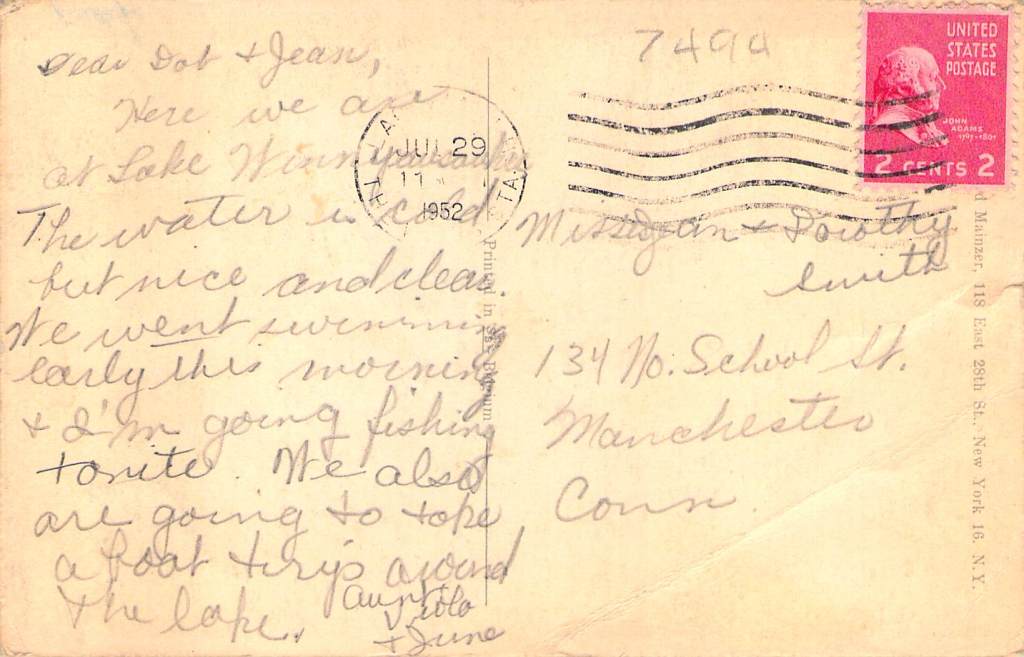 Dear Dot & Jean,
Here we are
at Lake
The water is cold
but nice and clear.
We went swimming
early this morning
& I'm going fishing
tonite. We also
are going to take
a boat trip around
the lake.
Aunt Viola
& June
7490
JUL 29
1952
UNITED
STATES
POSTAGE
JOHN
ADAMS
1797-1801
2 CENTS 2
Miss Jean & Dorothy
Smith
134 No. School St.
Manchester
Conn.
Printed in Belgium
d Mainzer, 118 East 28th St., New York 16. N.Y.